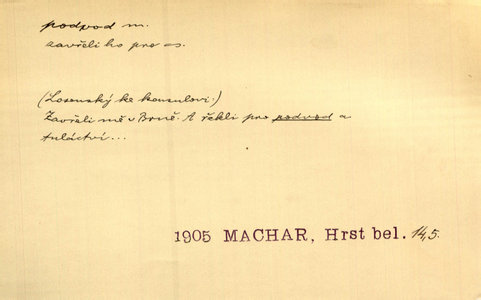 podvod m.
zavřeli ho pro os.
(Losenský ke konsulovi.)
Zavřeli mě v Brně. A řekli pro podvod a
tuláctví...
1905 MACHAR, Hrst bel. 14,5.